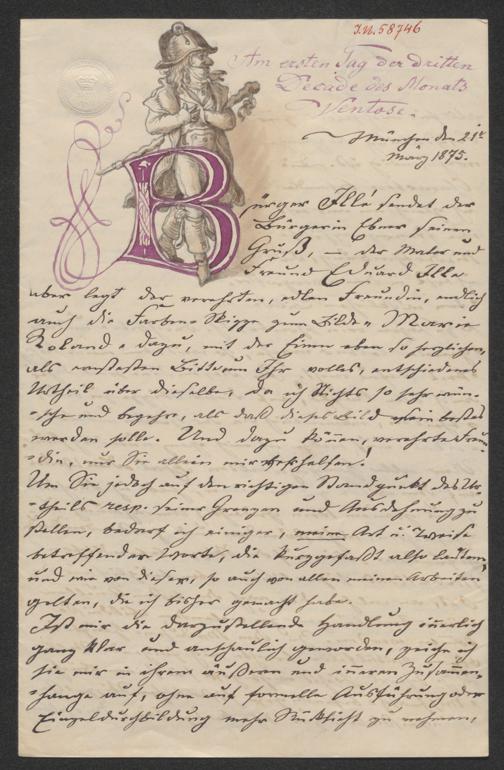 I.N. 58746
Am ersten Tag der dritten
Decade des Monats
Ventose.
München den 21t
März 1875.
Bürger Ille sendet der
Bürgerin Ebner seinen
Gruß, — der Maler und
Freund Eduard Ille
aber legt der verehrten, edlen Freundin, endlich
auch die Farben-Skizze zum Bilde "Marie
Roland" dazu, mit der Einen eben so herzlichen,
als ernstesten Bitte um Ihr volles, entschiedenes
Urtheil über dieselbe, da ich Nichts so sehr wün-
-sche und begehre, als daß dieses Bild mein bestes
werden solle. Und dazu können, verehrte Freun-
-din, nur Sie allein mir verhelfen!
Um Sie jedoch auf den richtigen Standpunkt des Ur-
-theils resp. seiner Grenzen und Ausdehnung zu
stellen, bedarf ich einiger, meine Art u. Weise
betreffender Worte, die kurzgefaßt also lauten,
und wie von dieser, so auch von allen meinen Arbeiten
gelten, die ich bisher gemacht habe.
Ist mir die darzustellende Handlung innerlich
ganz klar und anschaulich geworden, zeichne ich
sie mir in ihrem äußern und inneren Zusammen-
-hange auf, ohne auf formelle Ausführung oder
Einzeldurchbildung mehr Rücksicht zu nehmen,